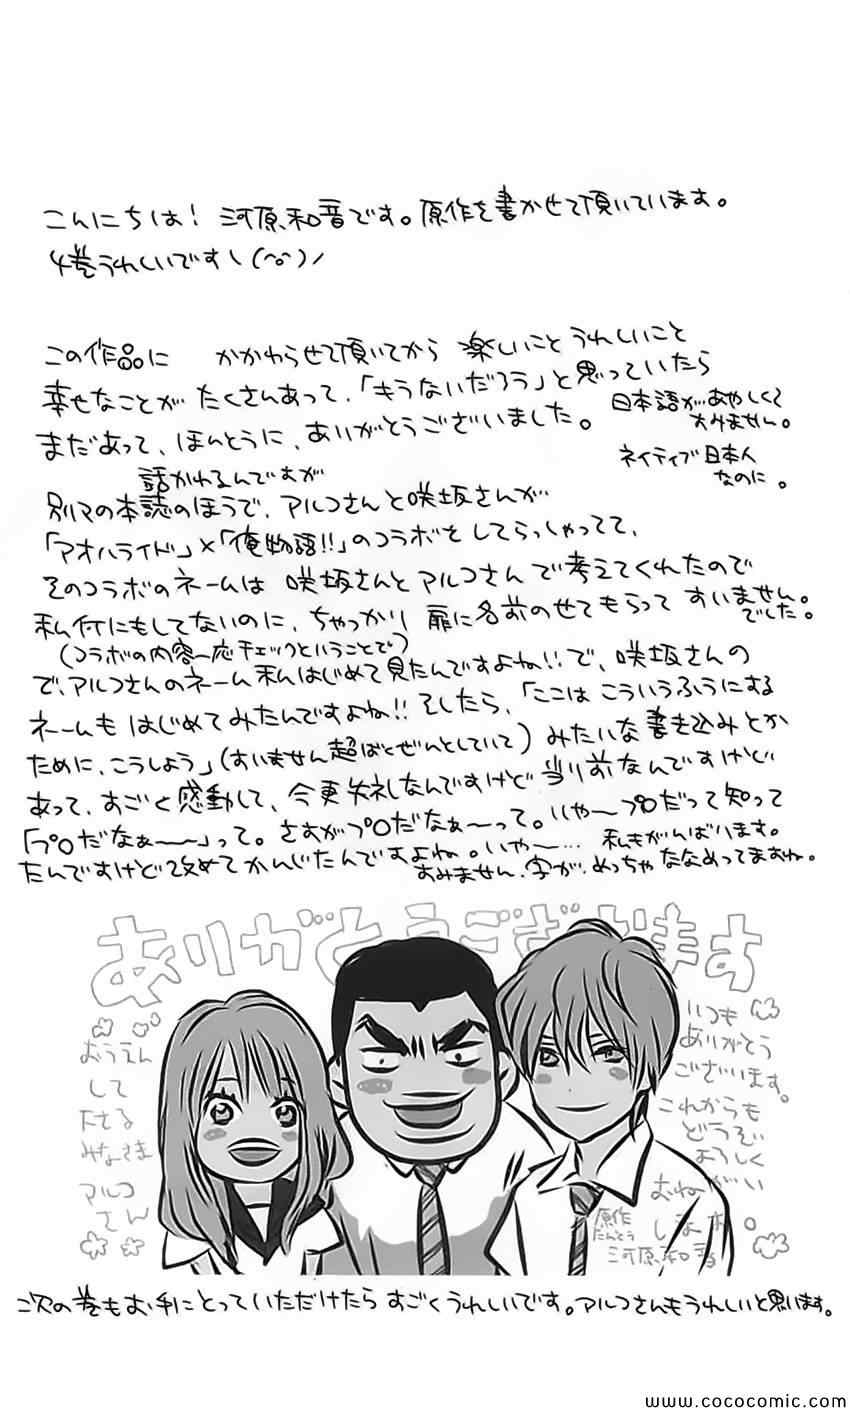 こんにちは! 河原和音です。原作を書かせて頂いています。
4巻うれしいですヽ(^o^)ノ
この作品に かかわらせて頂いてから 楽しいこと うれしいこと
幸せなことが たくさんあって、「もうないだろう」と思っていたら
まだあって、ほんとうに、ありがとうございました。
日本語があやしくて
すみません。
ネイティブ日本人
なのに。
話かわるんですが
別マの本誌のほうで、アルコさんと咲坂さんが
「アオハライド」×「俺物語!!」のコラボをしてらっしゃってて、
そのコラボのネームは 咲坂さんとアルコさんで考えてくれたので
私何にもしてないのに、ちゃっかり 扉に名前のせてもらって すいません。
でした。
(コラボの内容一応チェックということで)
で、アルコさんのネーム私はじめて見たんですよね!!で、咲坂さんの
ネームも はじめてみたんですよね!! そしたら、「ここは こういうふうにする
ために、こうしよう」(すいません超ばくぜんとしていて) みたいな書き込みとか
あって、すごく感動して、今更失礼なんですけど当り前なんですけど
「プロだなぁ〜〜」って。さすがプロだなぁ〜って。いや〜プロだって知って
たんですけど改めてかんじたんですよね。いや〜… 私もがんばります。
すみません、字が、めっちゃななめってますね。
ありがとうございます
おうえん
して
下さる
みなさま
アルコ
さん
いつも
ありがとう
ございます。
これからも
どうぞ
よろしく
おねがい
します。
原作
たんとう
河原和音
次の巻もお手にとっていただけたら すごくうれしいです。アルコさんもうれしいと思います。
www.cococomic.com